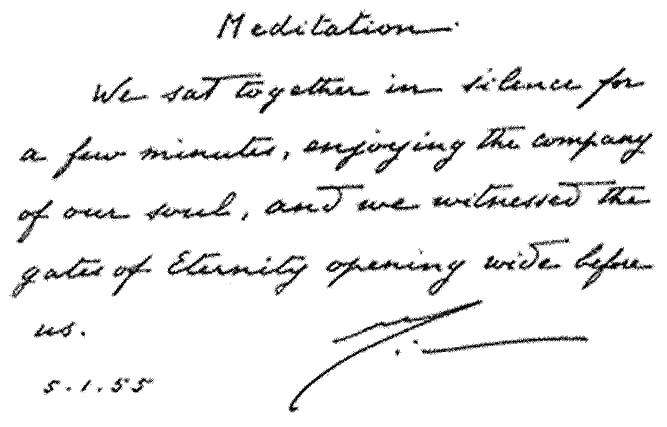 Meditation.
We sat together in silence for
a few minutes, enjoying the company
of our soul, and we witnessed the
gates of Eternity opening wide before
us.
5.1.55